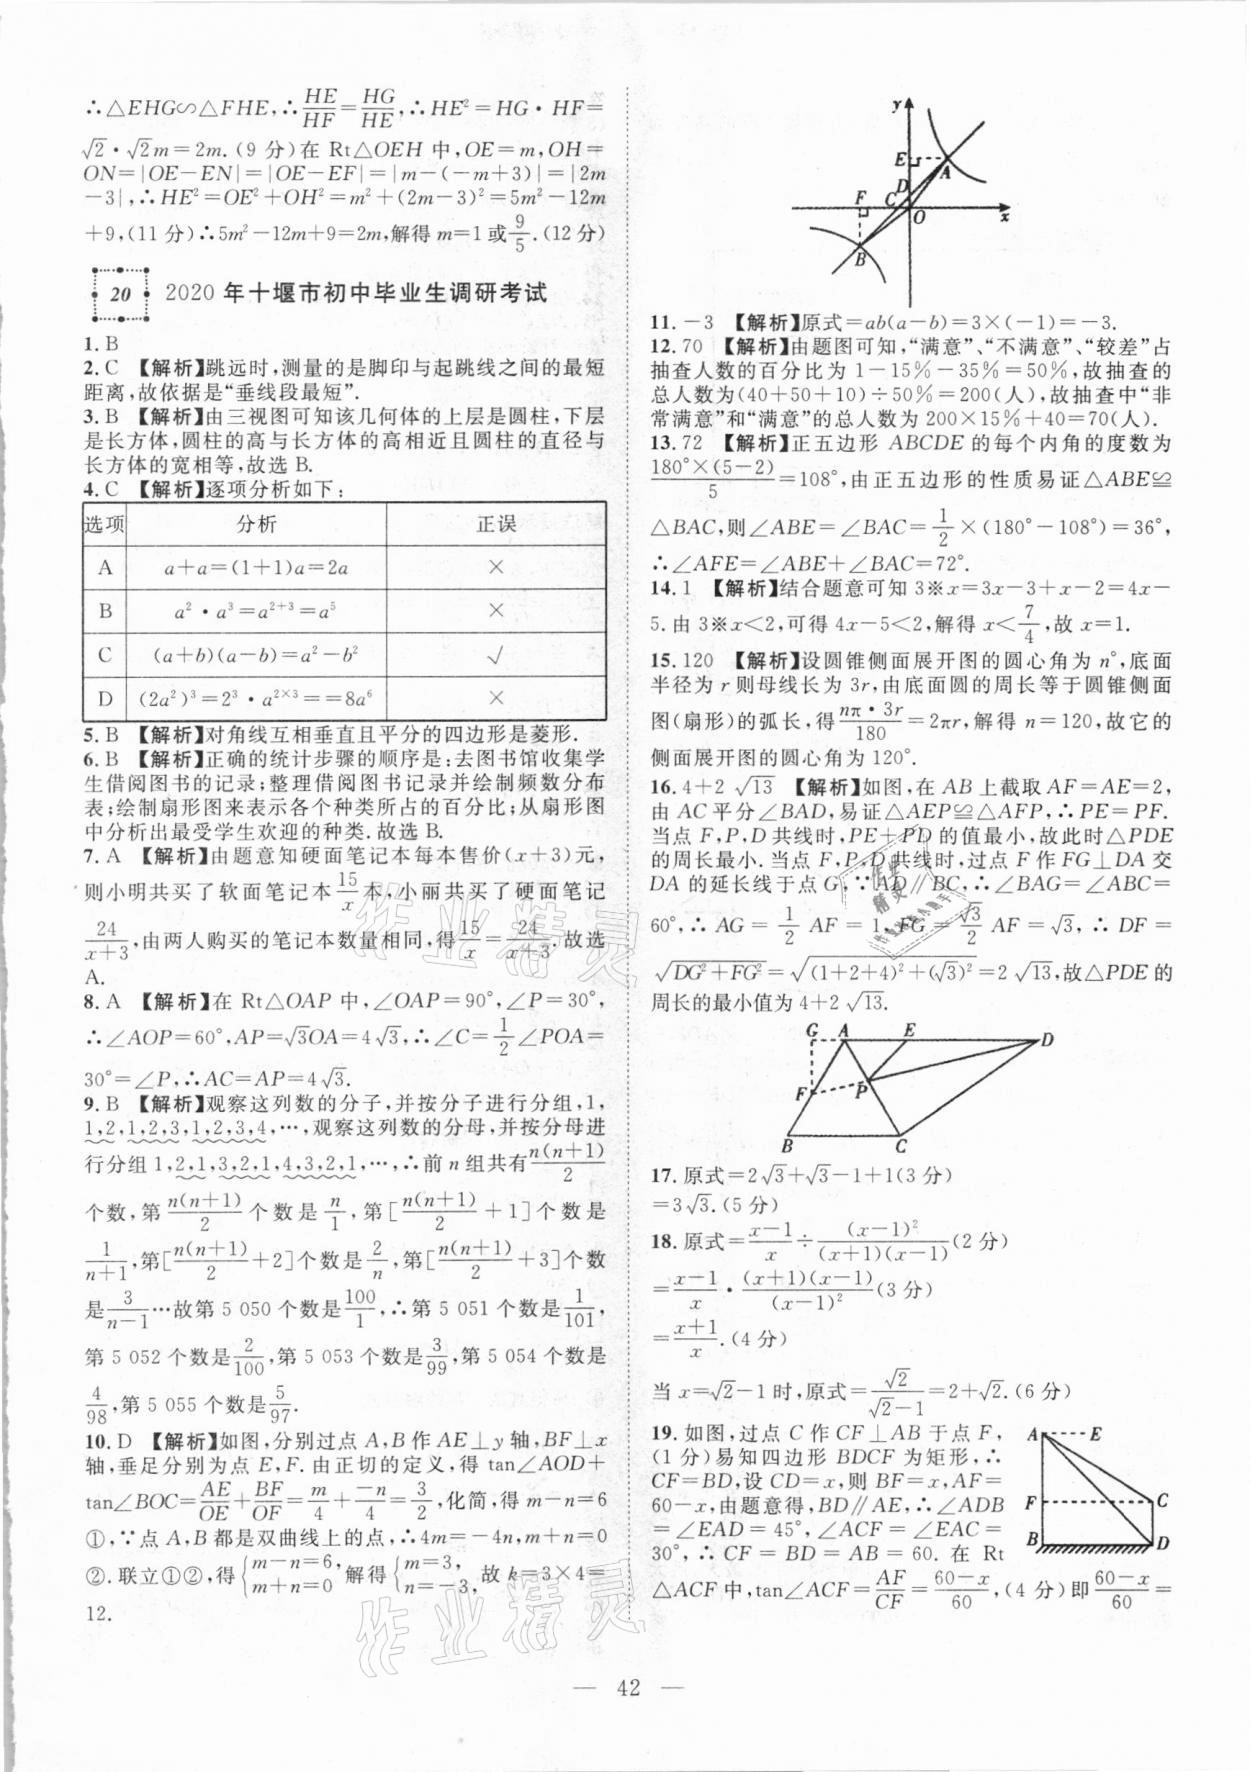 ∴△EHG∽△FHE,∴HE/HF=HG/HE,∴HE²=HG·HF=
√2·√2m=2m.(9分)在Rt△OEH中,OE=m,OH=
ON=|OE-EN|=|OE-EF|=|m-(-m+3)|=|2m
-3|,∴HE²=OE²+OH²=m²+(2m-3)²=5m²-12m
+9,(11分)∴5m²-12m+9=2m,解得m=1或9/5.(12分)
20 2020年十堰市初中毕业生调研考试
1.B
2.C 【解析】跳远时,测量的是脚印与起跳线之间的最短
距离,故依据是“垂线段最短”.
3.B 【解析】由三视图可知该几何体的上层是圆柱,下层
是长方体,圆柱的高与长方体的高相近且圆柱的直径与
长方体的宽相等,故选B.
4.C 【解析】逐项分析如下:
选项 分析 正误
A a+a=(1+1)a=2a ×
B a²·a³=a²⁺³=a⁵ ×
C (a+b)(a-b)=a²-b² √
D (2a²)³=2³·a²ˣ³==8a⁶ ×
5.B 【解析】对角线互相垂直且平分的四边形是菱形.
6.B 【解析】正确的统计步骤的顺序是:去图书馆收集学
生借阅图书的记录;整理借阅图书记录并绘制频数分布
表;绘制扇形图来表示各个种类所占的百分比;从扇形图
中分析出最受学生欢迎的种类.故选B.
7.A 【解析】由题意知硬面笔记本每本售价(x+3)元,
则小明共买了软面笔记本15/x本,小丽共买了硬面笔记本
24/(x+3),由两人购买的笔记本数量相同,得15/x=24/(x+3).故选
A.
8.A 【解析】在Rt△OAP中,∠OAP=90°,∠P=30°,
∴∠AOP=60°,AP=√3OA=4√3,∴∠C=1/2∠POA=
30°=∠P,∴AC=AP=4√3.
9.B 【解析】观察这列数的分子,并按分子进行分组,1,
1,2,1,2,3,1,2,3,4,…,观察这列数的分母,并按分母进
行分组1,2,1,3,2,1,4,3,2,1,…,∴前n组共有n(n+1)/2
个数,第n(n+1)/2个数是n/1,第[n(n+1)/2+1]个数是
1/(n+1),第[n(n+1)/2+2]个数是2/n,第[n(n+1)/2+3]个数
是3/(n-1)…故第5 050个数是100/1,∴第5 051个数是1/101,
第5 052个数是2/100,第5 053个数是3/99,第5 054个数是
4/98,第5 055个数是5/97.
10.D 【解析】如图,分别过点A,B作AE⊥y轴,BF⊥x
轴,垂足分别为点E,F.由正切的定义,得tan∠AOD+
tan∠BOC=AE/OE+BF/OF=m/4+(-n)/4=3/2,化简,得m-n=6
①,∵点A,B都是双曲线上的点,∴4m=-4n,m+n=0
②.联立①②,得{m-n=6,m+n=0 解得{m=3,n=-3,故k=3×4=
12.
y
E A
D
F C
O x
B
11.-3 【解析】原式=ab(a-b)=3×(-1)=-3.
12.70 【解析】由题图可知,“满意”、“不满意”、“较差”占
抽查人数的百分比为1-15%-35%=50%,故抽查的
总人数为(40+50+10)÷50%=200(人),故抽查中“非
常满意”和“满意”的总人数为200×15%+40=70(人).
13.72 【解析】正五边形ABCDE的每个内角的度数为
180°×(5-2)/5=108°,由正五边形的性质易证△ABE≌
△BAC,则∠ABE=∠BAC=1/2×(180°-108°)=36°,
∴∠AFE=∠ABE+∠BAC=72°.
14.1 【解析】结合题意可知3※x=3x-3+x-2=4x-
5.由3※x<2,可得4x-5<2,解得x<7/4,故x=1.
15.120 【解析】设圆锥侧面展开图的圆心角为n°,底面
半径为r则母线长为3r,由底面圆的周长等于圆锥侧面
图(扇形)的弧长,得nπ·3r/180=2πr,解得n=120,故它的
侧面展开图的圆心角为120°.
16.4+2√13 【解析】如图,在AB上截取AF=AE=2,
由AC平分∠BAD,易证△AEP≌△AFP,∴PE=PF.
当点F,P,D共线时,PE+PD的值最小,故此时△PDE
的周长最小.当点F,P,D共线时,过点F作FG⊥DA交
DA的延长线于点G,∵AD∥BC,∴∠BAG=∠ABC=
60°,∴AG=1/2AF=1,FG=√3/2AF=√3,∴DF=
√(DG²+FG²)=√((1+2+4)²+(√3)²)=2√13,故△PDE的
周长的最小值为4+2√13.
G A E D
F P
B C
17.原式=2√3+√3-1+1(3分)
=3√3.(5分)
18.原式=(x-1)/x÷(x-1)²/((x+1)(x-1))(2分)
=(x-1)/x·(x+1)(x-1)/(x-1)²(3分)
=(x+1)/x.(4分)
当x=√2-1时,原式=√2/(√2-1)=2+√2.(6分)
19.如图,过点C作CF⊥AB于点F,
(1分)易知四边形BDCF为矩形,∴
CF=BD,设CD=x,则BF=x,AF=
60-x,由题意得,BD∥AE,∴∠ADB
=∠EAD=45°,∠ACF=∠EAC=
30°,∴CF=BD=AB=60.在Rt
△ACF中,tan∠ACF=AF/CF=(60-x)/60,(4分)即(60-x)/60=
A E
F C
B D
作业精灵
作业精灵
— 42 —